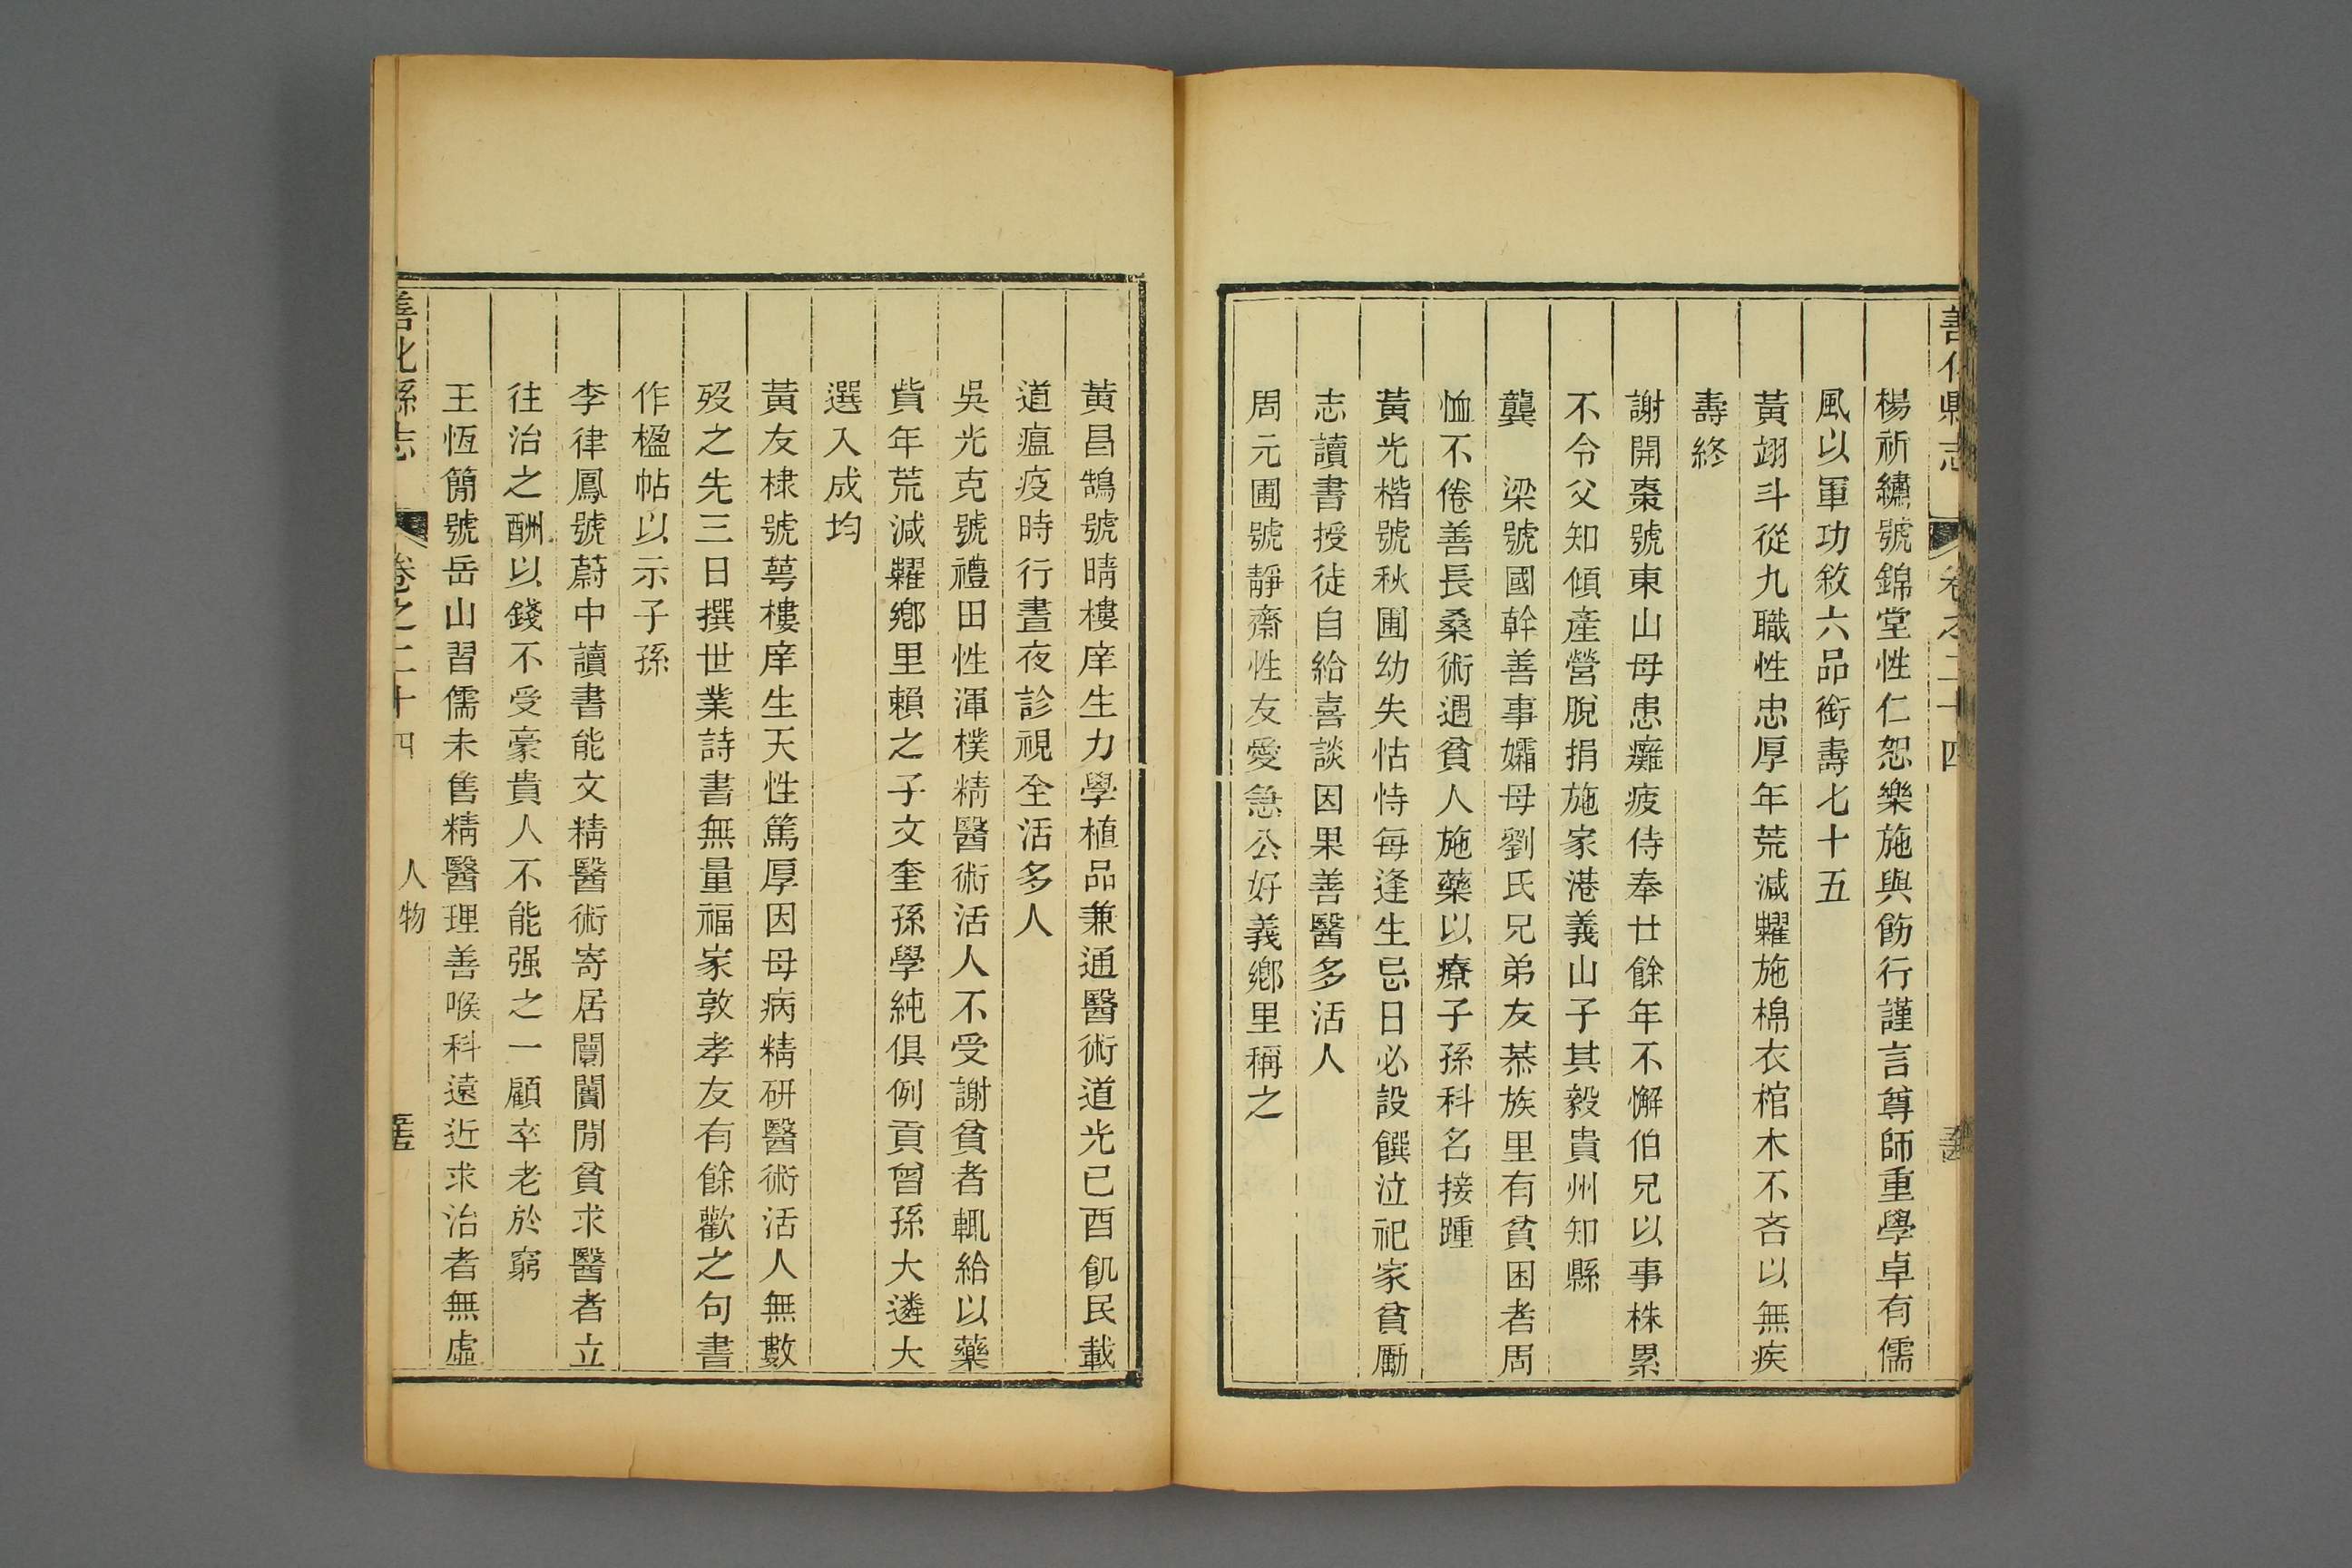 善化縣志
卷之二十四
楊祈繡號錦堂性仁恕樂施與飭行謹言尊師重學卓有儒
風以軍功敘六品銜壽七十五
黃翊斗從九職性忠厚年荒減糶施棉衣棺木不吝以無疾
壽終
謝開棗號東山母患癱疲侍奉廿餘年不懈伯兄以事株累
不令父知傾產營脫捐施家港義山子其毅貴州知縣
龔　梁號國幹善事孀母劉氏兄弟友恭族里有貧困者周
恤不倦善長桑術遇貧人施藥以療子孫科名接踵
黃光楷號秋圃幼失怙恃每逢生忌日必設饌泣祀家貧勵
志讀書授徒自給喜談因果善醫多活人
周元圃號靜齋性友愛急公好義鄉里稱之
黃昌鵠號晴樓庠生力學植品兼通醫術道光已酉飢民載
道瘟疫時行晝夜診視全活多人
吳光克號禮田性渾樸精醫術活人不受謝貧者輒給以藥
貲年荒減糶鄉里賴之子文奎孫學純俱例貢曾孫大遴大
選入成均
黃友棣號萼樓庠生天性篤厚因母病精研醫術活人無數
歿之先三日撰世業詩書無量福家敦孝友有餘歡之句書
作楹帖以示子孫
李律鳳號蔚中讀書能文精醫術寄居闤闠閒貧求醫者立
往治之酬以錢不受豪貴人不能强之一顧卒老於窮
王恆簡號岳山習儒未售精醫理善喉科遠近求治者無虛
善化縣志
卷之二十四
人物